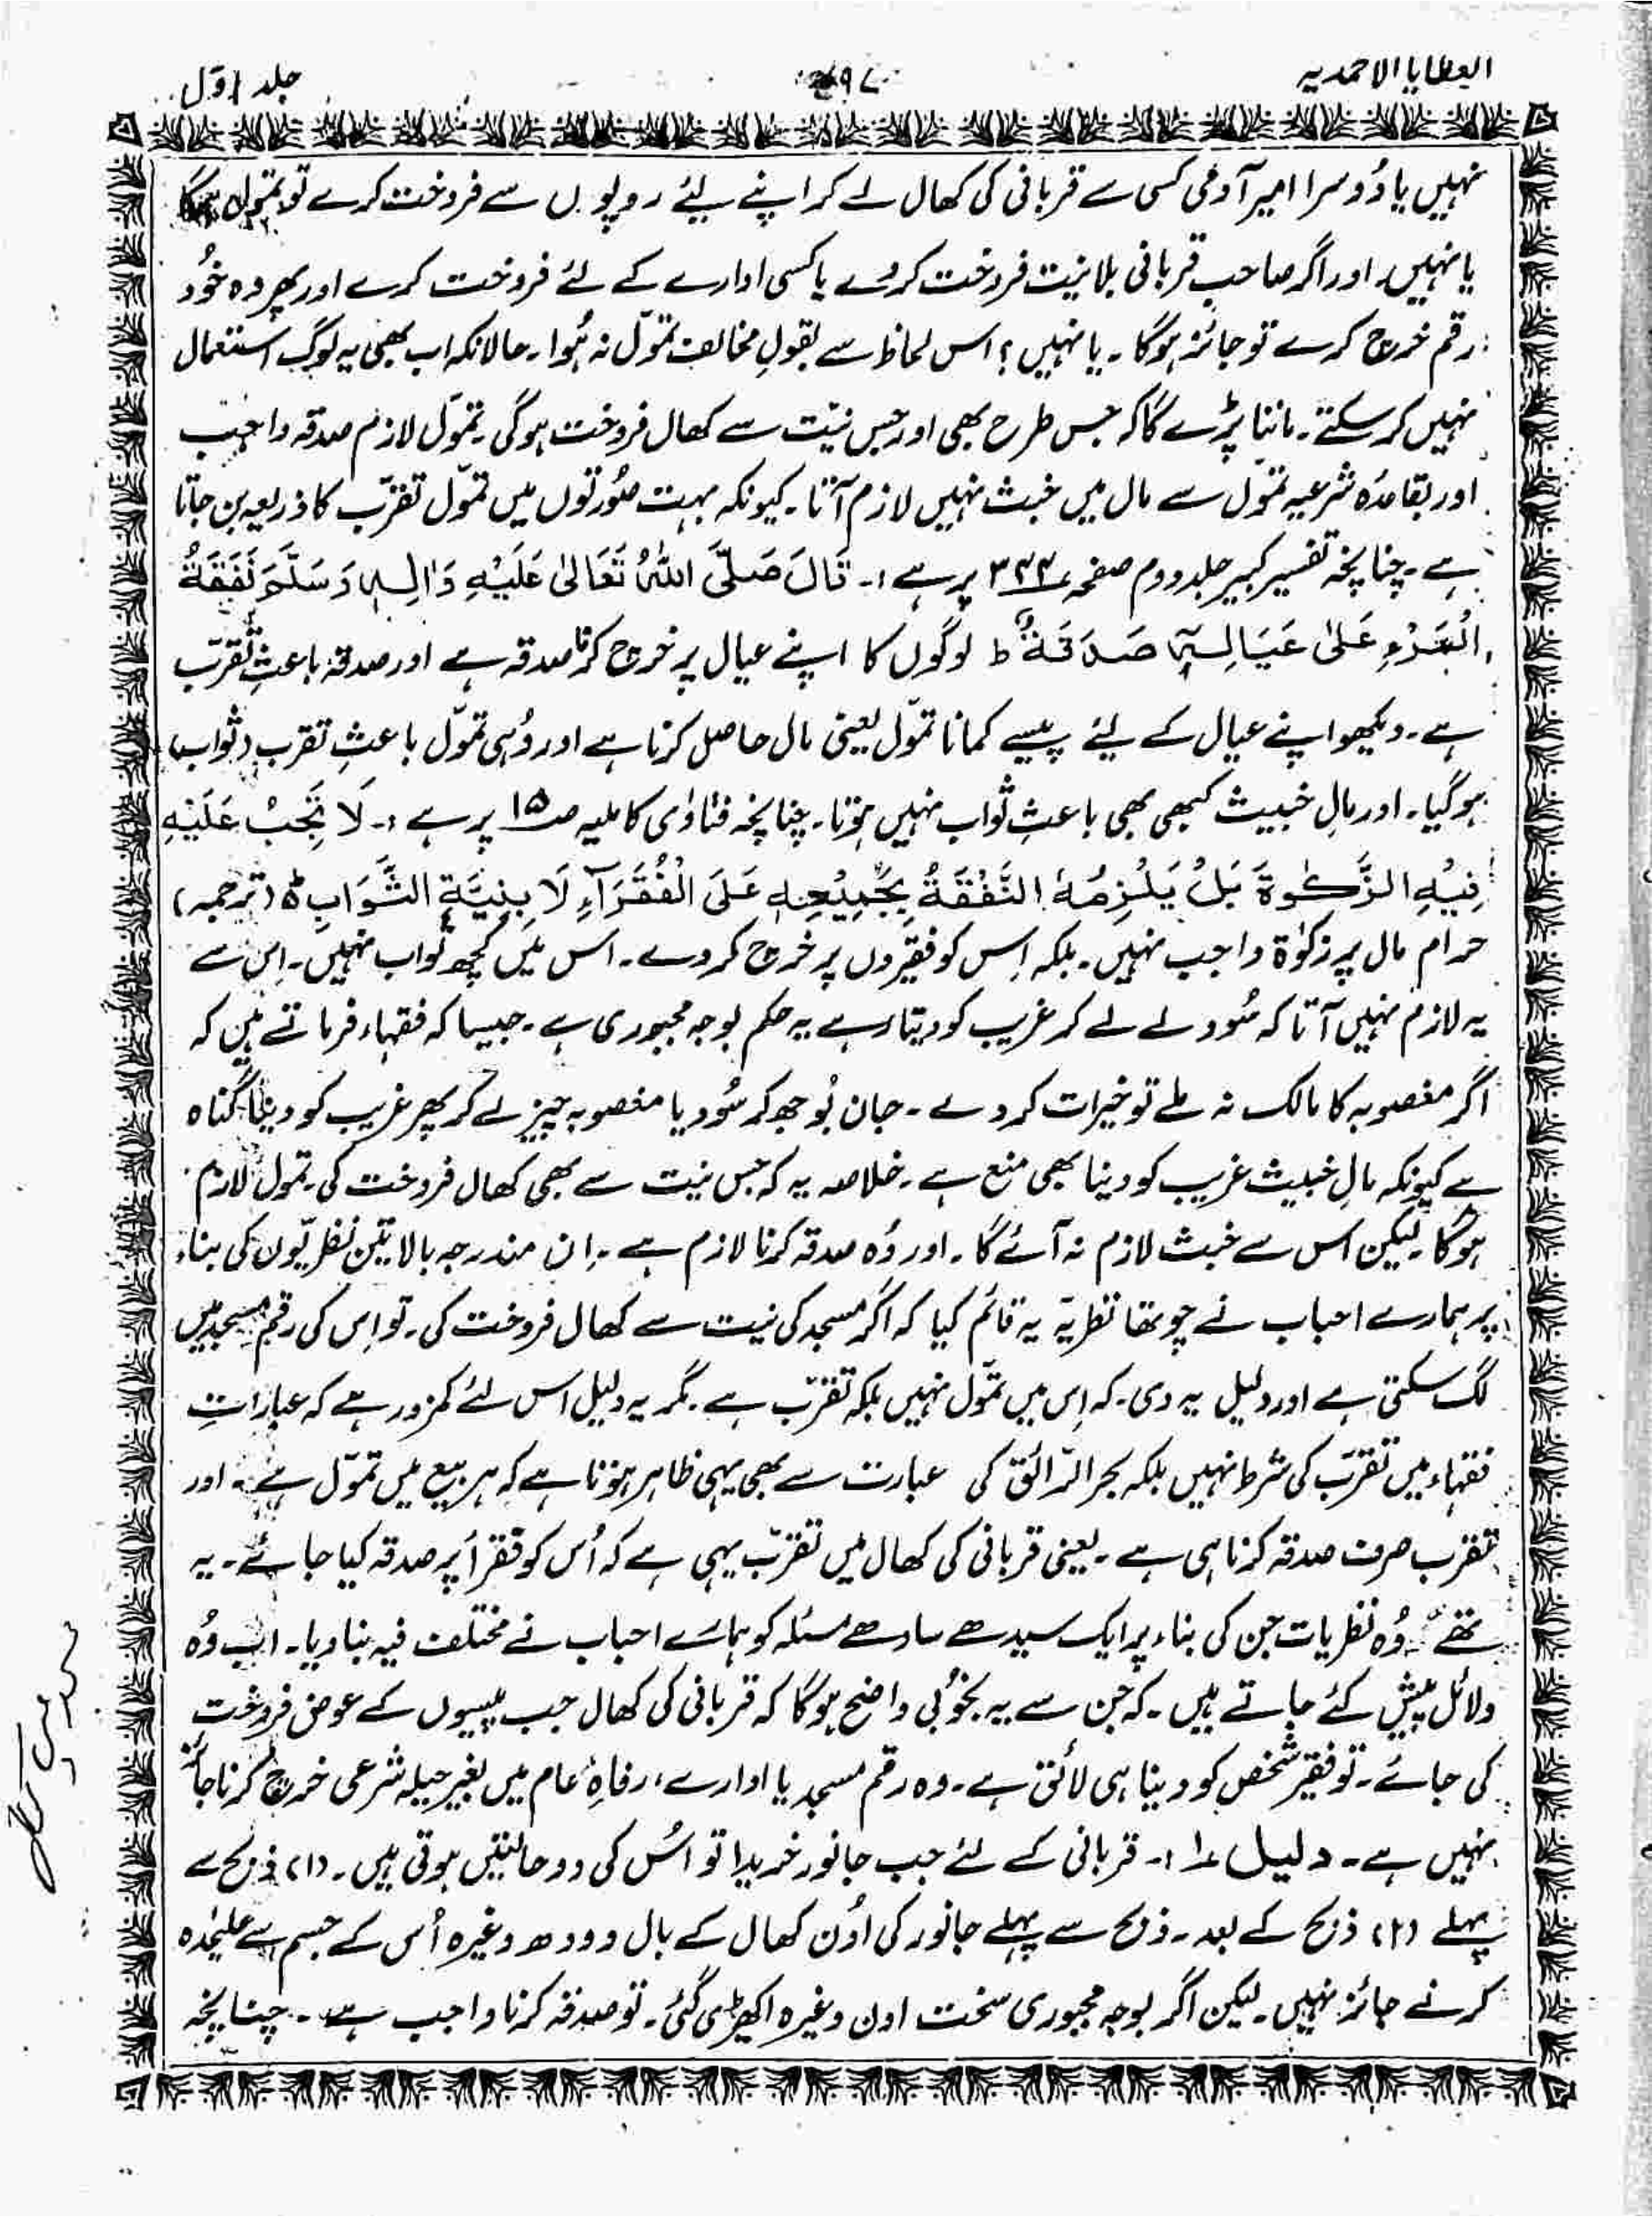 العطایا الاحمدیہ
جلد اوّل
نہیں یا دُوسرا امیر آدمی کسی سے قربانی کی کھال لے کر اپنے لیئے روپوں سے فروخت کرے تو تموّل ہوگا
یا نہیں۔ اور اگر صاحبِ قربانی بلا نیت فروخت کر دے یا کسی ادارے کے لئے فروخت کرے اور پھر وہ خُود
رقم خرچ کرے تو جائز ہوگا۔ یا نہیں؟ اس لحاظ سے بقولِ مخالف تموّل نہ ہُوا۔ حالانکہ اب بھی یہ لوگ استعمال
نہیں کر سکتے۔ ماننا پڑے گا کہ جس طرح بھی اور جس نیّت سے کھال فروخت ہوگی۔ تموّل لازم صدقہ واجب
اور بقاعدہ شرعیہ تموّل سے مال میں خبث نہیں لازم آتا۔ کیونکہ بہت صُورتوں میں تموّل تقرّب کا ذریعہ بن جاتا
ہے۔ چنانچہ تفسیر کبیر جلد دوم صفحہ ۳۳۳ پر ہے:۔ قَالَ صَلَّی اللہُ تَعَالیٰ عَلَیْہِ وَاٰلِہٖ وَسَلَّمَ نَفَقَۃُ
الْمَرْءِ عَلیٰ عَیَالِہٖ صَدَقَۃٌ ط لوگوں کا اپنے عیال پر خرچ کرنا صدقہ ہے اور صدقہ باعثِ تقرّب
ہے۔ دیکھو اپنے عیال کے لیئے پیسے کمانا تموّل یعنی مال حاصل کرنا ہے اور وُہی تموّل باعثِ تقرب (ثواب)
ہوگیا۔ اور مالِ خبیث کبھی بھی باعثِ ثواب نہیں ہوتا۔ چنانچہ فتاوٰی کاملیہ صہ ۱۵ پر ہے:۔ لَا تَجِبُ عَلَیْہِ
فِیْہِ الزَّکوٰۃَ بَلْ یَلْزِمُہٗ النَّفْقَۃُ بِجَمِیْعِہٖ عَلَی الْفُقَرَآءِ لَا بِنِیَّۃِ الثَّوَابِ ہ (ترجمہ)
حرام مال پر زکوٰۃ واجب نہیں۔ بلکہ اِس کو فقیروں پر خرچ کر دے۔ اس میں کچھ ثواب نہیں۔ اِس سے
یہ لازم نہیں آتا کہ سُود لے لے کر غریب کو دیتا رہے یہ حکم بوجہ مجبوری ہے۔ جیسا کہ فقہاء فرماتے ہیں کہ
اگر مغصوبہ کا مالک نہ ملے تو خیرات کر دے۔ جان بُوجھ کر سُود یا مغصوبہ چیز لے کر پھر غریب کو دینا گناہ
ہے کیونکہ مالِ خبیث غریب کو دینا بھی منع ہے۔ خلاصہ یہ کہ جس نیت سے بھی کھال فروخت کی۔ تمول لازم
ہوگا۔ لیکن اس سے خبث لازم نہ آئے گا۔ اور وُہ صدقہ کرنا لازم ہے۔ اِن مندرجہ بالا تین نظریّوں کی بناء
پر ہمارے احباب نے چوتھا نظریّہ یہ قائم کیا کہ اگر مسجد کی نیت سے کھال فروخت کی۔ تو اِس کی رقم مسجد میں
لگ سکتی ہے اور دلیل یہ دی۔ کہ اِس میں تموّل نہیں بلکہ تقرّب ہے۔ مگر یہ دلیل اس لئے کمزور ہے کہ عباراتِ
فقہاء میں تقرّب کی شرط نہیں بلکہ بحر الرّائق کی عبارت سے بھی یہی ظاہر ہوتا ہے کہ ہر بیع میں تموّل ہے۔ اور
تقرب صرف صدقہ کرنا ہی ہے۔ یعنی قربانی کی کھال میں تقرّب یہی ہے کہ اُس کو فقرأ پر صدقہ کیا جائے۔ یہ
تھے وُہ نظریات جن کی بناء پر ایک سیدھے سادھے مسئلہ کو ہمارے احباب نے مختلف فیہ بنا دیا۔ اب وُہ
دلائل پیش کئے جاتے ہیں۔ کہ جن سے یہ بخُوبی واضح ہوگا کہ قربانی کی کھال جب پیسیوں کے عوض فروخت
کی جائے۔ تو فقیر شخص کو دینا ہی لائق ہے۔ وہ رقم مسجد یا ادارے، رفاہِ عام میں بغیر حیلہ شرعی خرچ کرنا جائز
نہیں ہے۔ دلیل ۱:۔ قربانی کے لئے جب جانور خریدا تو اسُ کی دو حالتیں ہوتی ہیں۔ (۱) ذبح سے
پہلے (۲) ذبح کے بعد۔ ذبح سے پہلے جانور کی اُون کھال کے بال دودھ وغیرہ اُس کے جسم سے علیٰحدہ
کرنے جائز نہیں۔ لیکن اگر بوجہ مجبوری سخت اون وغیرہ اکھیڑی گئی۔ تو صدقہ کرنا واجب ہے۔ چنانچہ